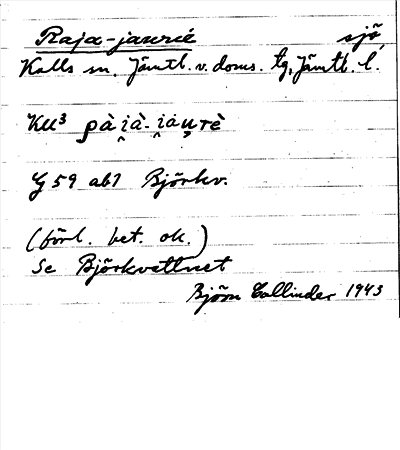 Raja-jaurié sjö
Kalls sn. Jämtl. v. doms. tg, Jämtl. l.
KU³ pài̯à-i̯áu̯rè
G 59 ab1 Björkv.
(förl. bet. ok.)
Se Björkvattnet
Björn Collinder 1943